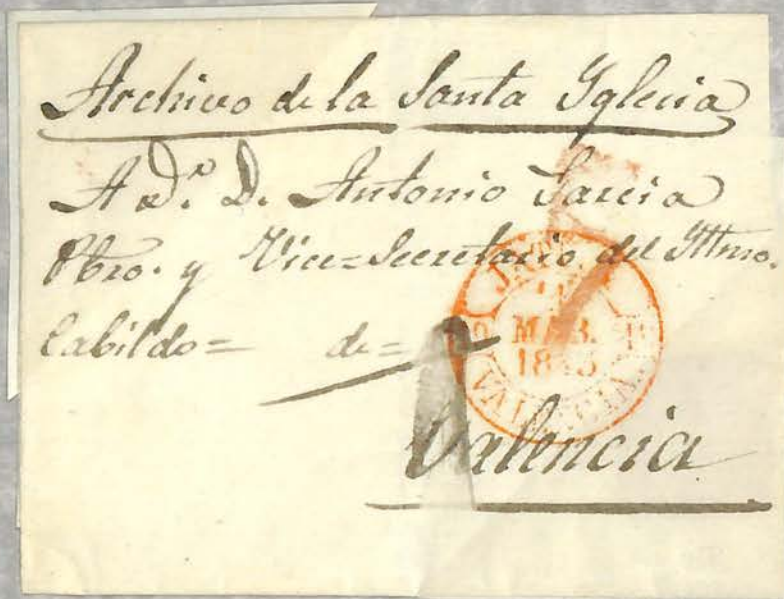 Archivo de la Santa Yglecia
A Dn. D. Antonio Garcia
Pbro. y Vice=Secretario del Yttmo.
Cabildo= de=
MAR.
1845
VALENCIA
Valencia